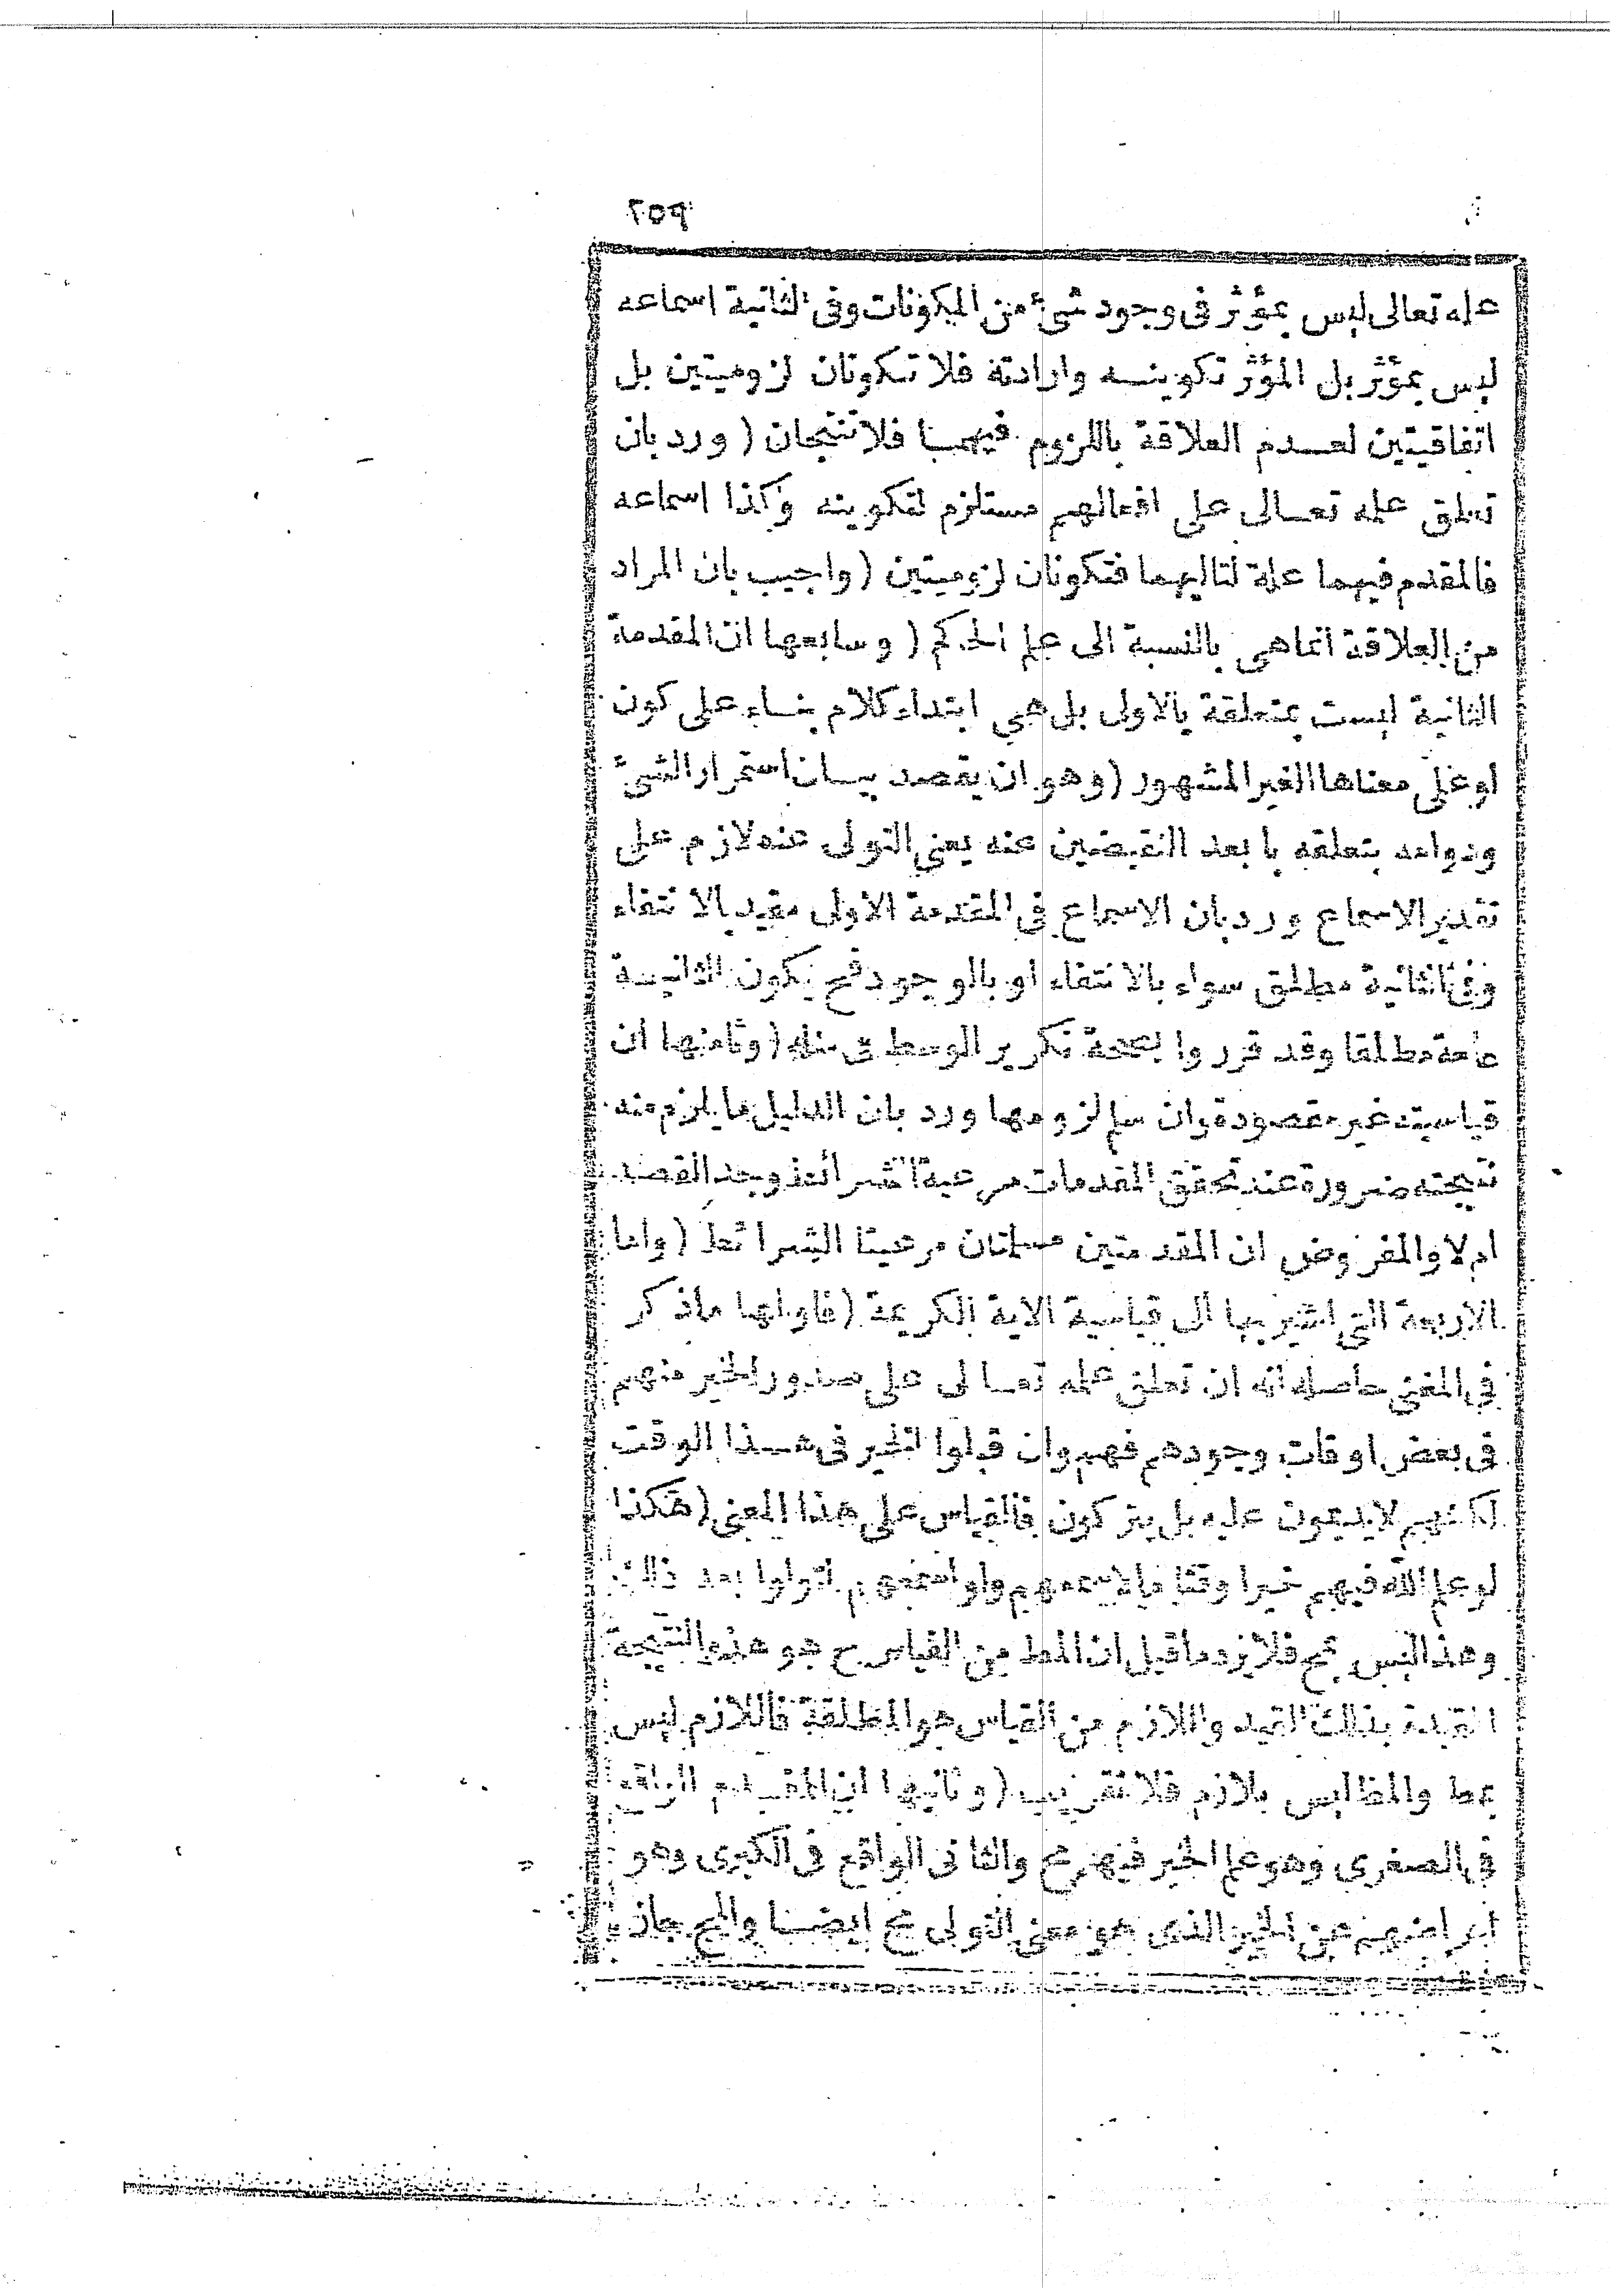 ٢٥٩
علمه تعالى ليس بمؤثر فى وجود شئ من المكونات وفى الثانية اسماعه
ليس بمؤثر بل المؤثر تكوينه وارادته فلا تكونان لزوميتين بل
اتفاقيتين لعدم العلاقة باللزوم فيهما فلا تنتجان ( ورد بان
تعلق علمه تعالى على افعالهم مستلزم لتكوينه وكذا اسماعه
فالمقدم فيهما علة لتاليهما فتكونان لزوميتين ( واجيب بان المراد
من العلاقة انما هى بالنسبة الى علم الحكم ( وسابعها ان المقدمة
الثانية ليست بمتعلقة بالاولى بل هى ابتداء كلام بناء على كون
لو على معناها الغير المشهور ( وهو ان يقصد بيان استمرار الشئ
ودوامه بتعلقه بابعد النقيضين عنه يعنى التولى عنه لازم على
تقدير الاسماع ورد بان الاسماع فى المقدمة الاولى مقيد بالانتفاء
وفى الثانية مطلق سواء بالانتفاء او بالوجود فح يكون الثانية
عامة مطلقا وقد قرروا بصحة تكرير الوسط فى مثله ( وثامنها ان
قياسيته غير مقصودة وان سلم لزومها ورد بان الدليل ما يلزم منه
نتيجته ضرورة عند تحقق المقدمات مرعية الشرائط وجد القصد
ام لا والمفروض ان المقدمتين مسلمتان مرعيتا الشرائط ( واما
الاربعة التى اشير بها الى قياسية الاية الكريمة ( فاولها ماذكر
فى المغنى حاصله انه ان تعلق علمه تعالى على صدور الخير منهم
فى بعض اوقات وجودهم فهم وان قبلوا الخير فى هذا الوقت
لكنهم لا يديمون عليه بل يتركون فالقياس على هذا المعنى ( هكذا
لو علم الله فيهم خيرا وقتا ما لاسمعهم ولو اسمعهم لتولوا بعد ذلك
وهذا ليس بمح فلا يرد ما قيل ان المط من القياس ح هو هذه النتيجة
المقيدة بذلك القيد واللازم من القياس هو المطلقة فاللازم ليس
بمط والمط ليس بلازم فلا تقريب ( وثانيها ان المقدم الواقع
فى الصغرى وهو علم الخير فيهم مح والثانى الواقع فى الكبرى وهو
اعراضهم عن الخير الذى هو معنى التولى مح ايضا والمح جاز